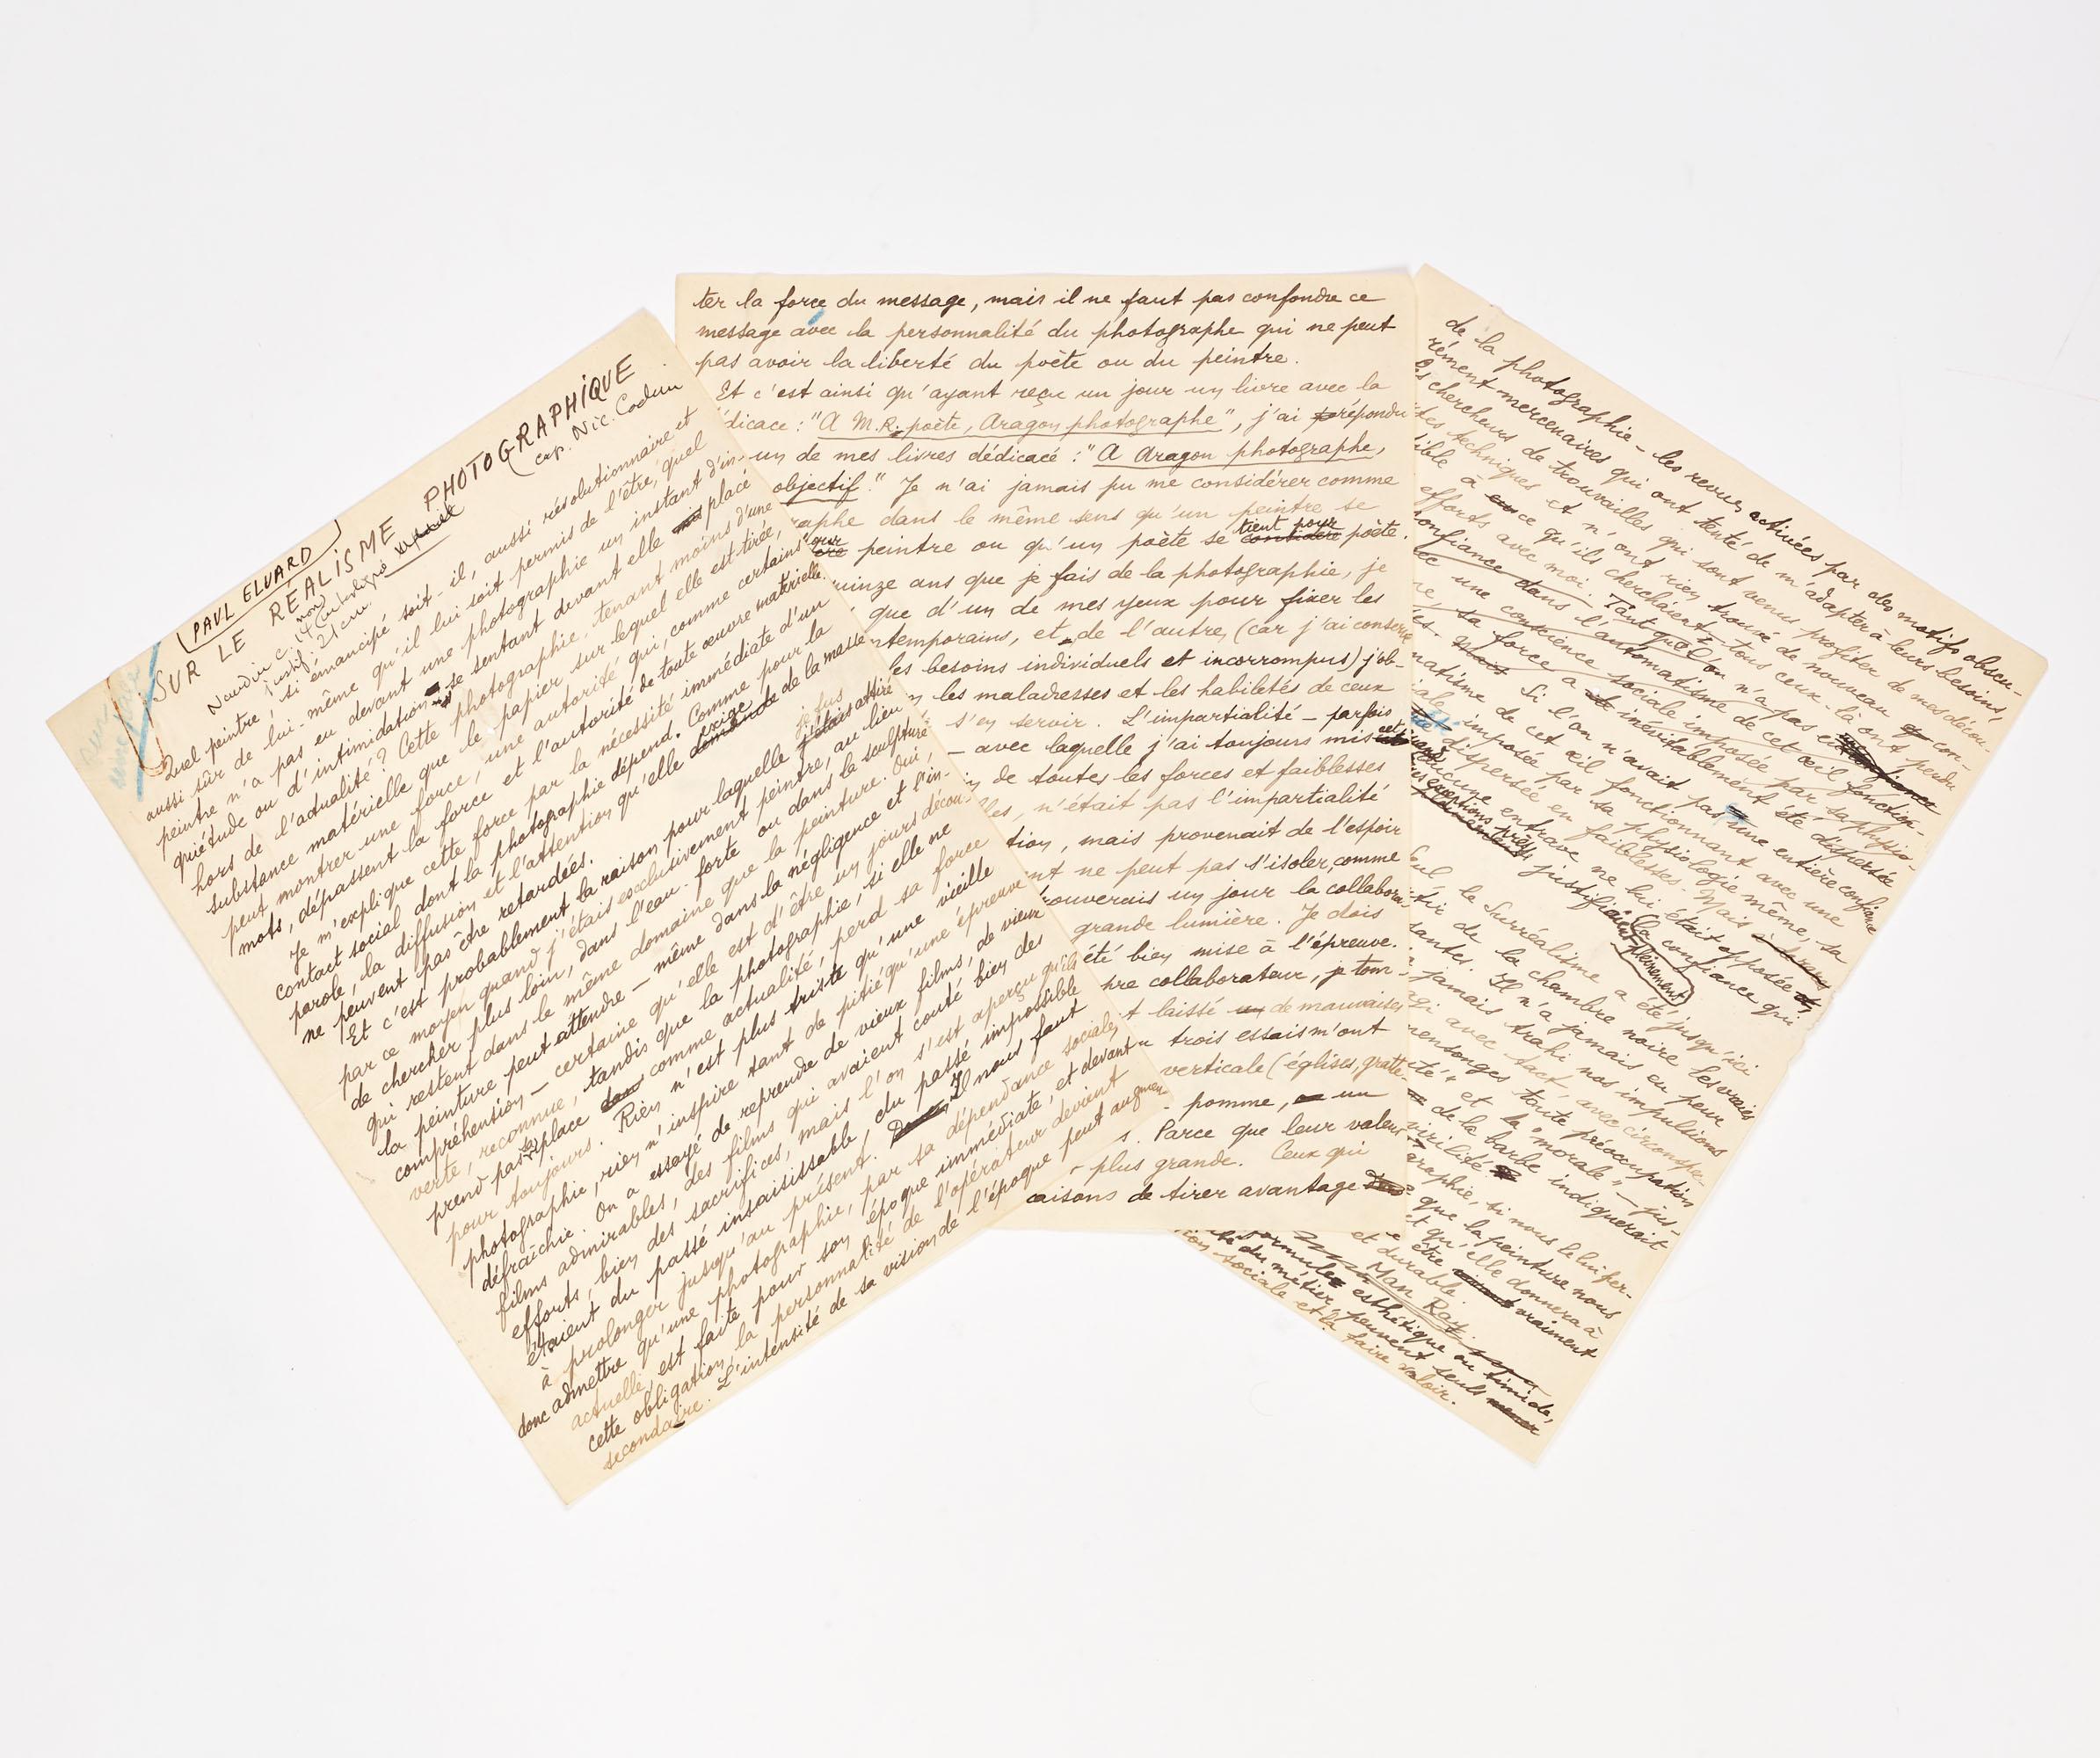 PAUL ELUARD
SUR LE REALISME PHOTOGRAPHIQUE
Naudin c. 14 cap. Nic. Cochin
justif. 21 cm.
Quel peintre, si émancipé soit-il, aussi révolutionnaire et
aussi sûr de lui-même qu'il lui soit permis de l'être, quel
peintre n'a pas eu devant une photographie un instant d'in-
quiétude ou d'intimidation, se sentant devant elle placé
hors de l'actualité? Cette photographie, tenant moins d'une
substance matérielle que le papier sur lequel elle est tirée,
peut montrer une force, une autorité qui, comme certains
mots, dépassent la force et l'autorité de toute œuvre matérielle.
Je m'explique cette force par la nécessité immédiate d'un
contact social dont la photographie dépend. Comme pour la
parole, la diffusion et l'attention qu'elle exige de la masse
ne peuvent pas être retardées.
Et c'est probablement la raison pour laquelle je fus attiré
par ce moyen quand j'étais exclusivement peintre, au lieu
de chercher plus loin, dans l'eau-forte ou dans la sculpture
qui restent dans le même domaine que la peinture. Oui,
la peinture peut attendre — même dans la négligence et l'in-
compréhension — certaine qu'elle est d'être un jour décou-
verte, reconnue, tandis que la photographie, si elle ne
prend pas sa place comme actualité, perd sa force
pour toujours. Rien n'est plus triste qu'une vieille
photographie, rien n'inspire tant de pitié qu'une épreuve
défraîchie. On a essayé de reprendre de vieux films, de vieux
films admirables, des films qui avaient couté bien des
efforts, bien des sacrifices, mais l'on s'est aperçu qu'ils
étaient du passé insaisissable, du passé impossible
à prolonger jusqu'au présent. Il nous faut
donc admettre qu'une photographie, par sa dépendance sociale
actuelle, est faite pour son époque immédiate, et devant
cette obligation, la personnalité de l'opérateur devient
secondaire. L'intensité de sa vision de l'époque peut augmen
ter la force du message, mais il ne faut pas confondre ce
message avec la personnalité du photographe qui ne peut
pas avoir la liberté du poète ou du peintre.
Et c'est ainsi qu'ayant reçu un jour un livre avec la
dicace: "A M.R. poète, Aragon photographe", j'ai répondu
un de mes livres dédicacé: "A Aragon photographe,
objectif." Je n'ai jamais pu me considérer comme
raphe dans le même sens qu'un peintre se
peintre ou qu'un poète se tient pour poète.
uinze ans que je fais de la photographie, je
que d'un de mes yeux pour fixer les
ntemporains, et, de l'autre, (car j'ai conservé
les besoins individuels et incorrompus) j'ob-
les maladresses et les habiletés de ceux
s'en servoir. L'impartialité — parfois
— avec laquelle j'ai toujours mis
de toutes les forces et faiblesses
les, n'était pas l'impartialité
tion, mais provenait de l'espoir
nt ne peut pas s'isoler, comme
rouverais un jour la collabora-
grande lumière. Je dois
été bien mise à l'épreuve.
pre collaborateur, je tom-
t laissé de mauvaises
trois essais m'ont
verticale (églises, gratte-
pomme, un
s. Parce que leur valeur
plus grande. Ceux qui
raisons de tirer avantage
de la photographie — les revues activées par des motifs obscu-
rément mercenaires qui ont tenté de m'adapter à leurs besoins,
les chercheurs de trouvailles qui sont venus profiter de mes décou-
des techniques et n'ont rien trouvé de nouveau con-
à ce qu'ils cherchaient — tous ceux-là ont perdu
efforts avec moi. Tant qu'on n'a pas eu
confiance dans l'automatisme de cet œil fonction-
une conscience sociale imposée par sa physio-
sa force a inévitablement été dispersée
Si l'on n'avait pas une entière confiance
matisme de cet œil fonctionnant avec une
imposée par sa physiologie même, sa
dispersée en faiblesses. Mais
aucune entrave ne lui était opposée
justifiait pleinement la confiance qui
Seul le Surréalisme a été jusqu'ici
de la chambre noire les vraies
santes. Il n'a jamais eu peur
jamais trahi nos impulsions
agi avec tact, avec circonspec-
mensonges toute préoccupation
et la "morale" — jus-
de la barbe indiquerait
virilité
graphie, si nous le lui per-
que la peinture nous
et qu'elle donnera à
être vraiment
et durable.
Man Ray.
formules esthétique ou timide,
du métier, peuvent seuls
sociale et la faire valoir.